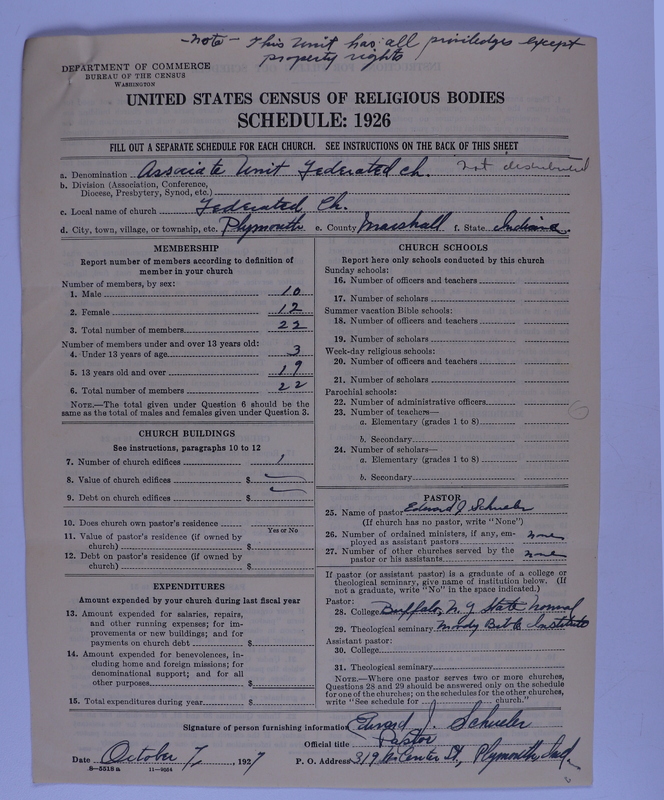 -Note- This Unit has all priviledges except
property rights
DEPARTMENT OF COMMERCE
BUREAU OF THE CENSUS
WASHINGTON
UNITED STATES CENSUS OF RELIGIOUS BODIES
SCHEDULE: 1926
FILL OUT A SEPARATE SCHEDULE FOR EACH CHURCH. SEE INSTRUCTIONS ON THE BACK OF THIS SHEET
a. Denomination Associate Unit Federated ch. not distributed
b. Division (Association, Conference,
Diocese, Presbytery, Synod, etc.)
c. Local name of church Federated Ch.
d. City, town, village, or township, etc. Plymouth e. County Marshall f. State Indiana
MEMBERSHIP
Report number of members according to definition of
member in your church
Number of members, by sex:
1. Male 10
2. Female 12
3. Total number of members 22
Number of members under and over 13 years old:
4. Under 13 years of age 3
5. 13 years old and over 19
6. Total number of members 22
NOTE.—The total given under Question 6 should be the
same as the total of males and females given under Question 3.
CHURCH BUILDINGS
See instructions, paragraphs 10 to 12
7. Number of church edifices 1
8. Value of church edifices $
9. Debt on church edifices $
10. Does church own pastor's residence
Yes or No
11. Value of pastor's residence (if owned by
church) $
12. Debt on pastor's residence (if owned by
church) $
EXPENDITURES
Amount expended by your church during last fiscal year
13. Amount expended for salaries, repairs,
and other running expenses; for im-
provements or new buildings; and for
payments on church debt $
14. Amount expended for benevolences, in-
cluding home and foreign missions; for
denominational support; and for all
other purposes $
15. Total expenditures during year $
CHURCH SCHOOLS
Report here only schools conducted by this church
Sunday schools:
16. Number of officers and teachers
17. Number of scholars
Summer vacation Bible schools:
18. Number of officers and teachers
19. Number of scholars
Week-day religious schools:
20. Number of officers and teachers
21. Number of scholars
Parochial schools:
22. Number of administrative officers
23. Number of teachers—
a. Elementary (grades 1 to 8)
b. Secondary
24. Number of scholars—
a. Elementary (grades 1 to 8)
b. Secondary
6
PASTOR
25. Name of pastor Edward J Schueler
(If church has no pastor, write "None")
26. Number of ordained ministers, if any, em-
ployed as assistant pastors none
27. Number of other churches served by the
pastor or his assistants none
If pastor (or assistant pastor) is a graduate of a college or
theological seminary, give name of institution below. (If
not a graduate, write "No" in the space indicated.)
Pastor:
28. College Buffalo, N.Y State normal
29. Theological seminary Moody Bible Institute
Assistant pastor:
30. College
31. Theological seminary
NOTE.—Where one pastor serves two or more churches,
Questions 28 and 29 should be answered only on the schedule
for one of the churches; on the schedules for the other churches,
write "See schedule for church."
Signature of person furnishing information Edward J. Schueler
Official title Pastor
Date October 7, 1927 P. O. Address 319 W Center St., Plymouth, Ind.
8-5518a 11-9054